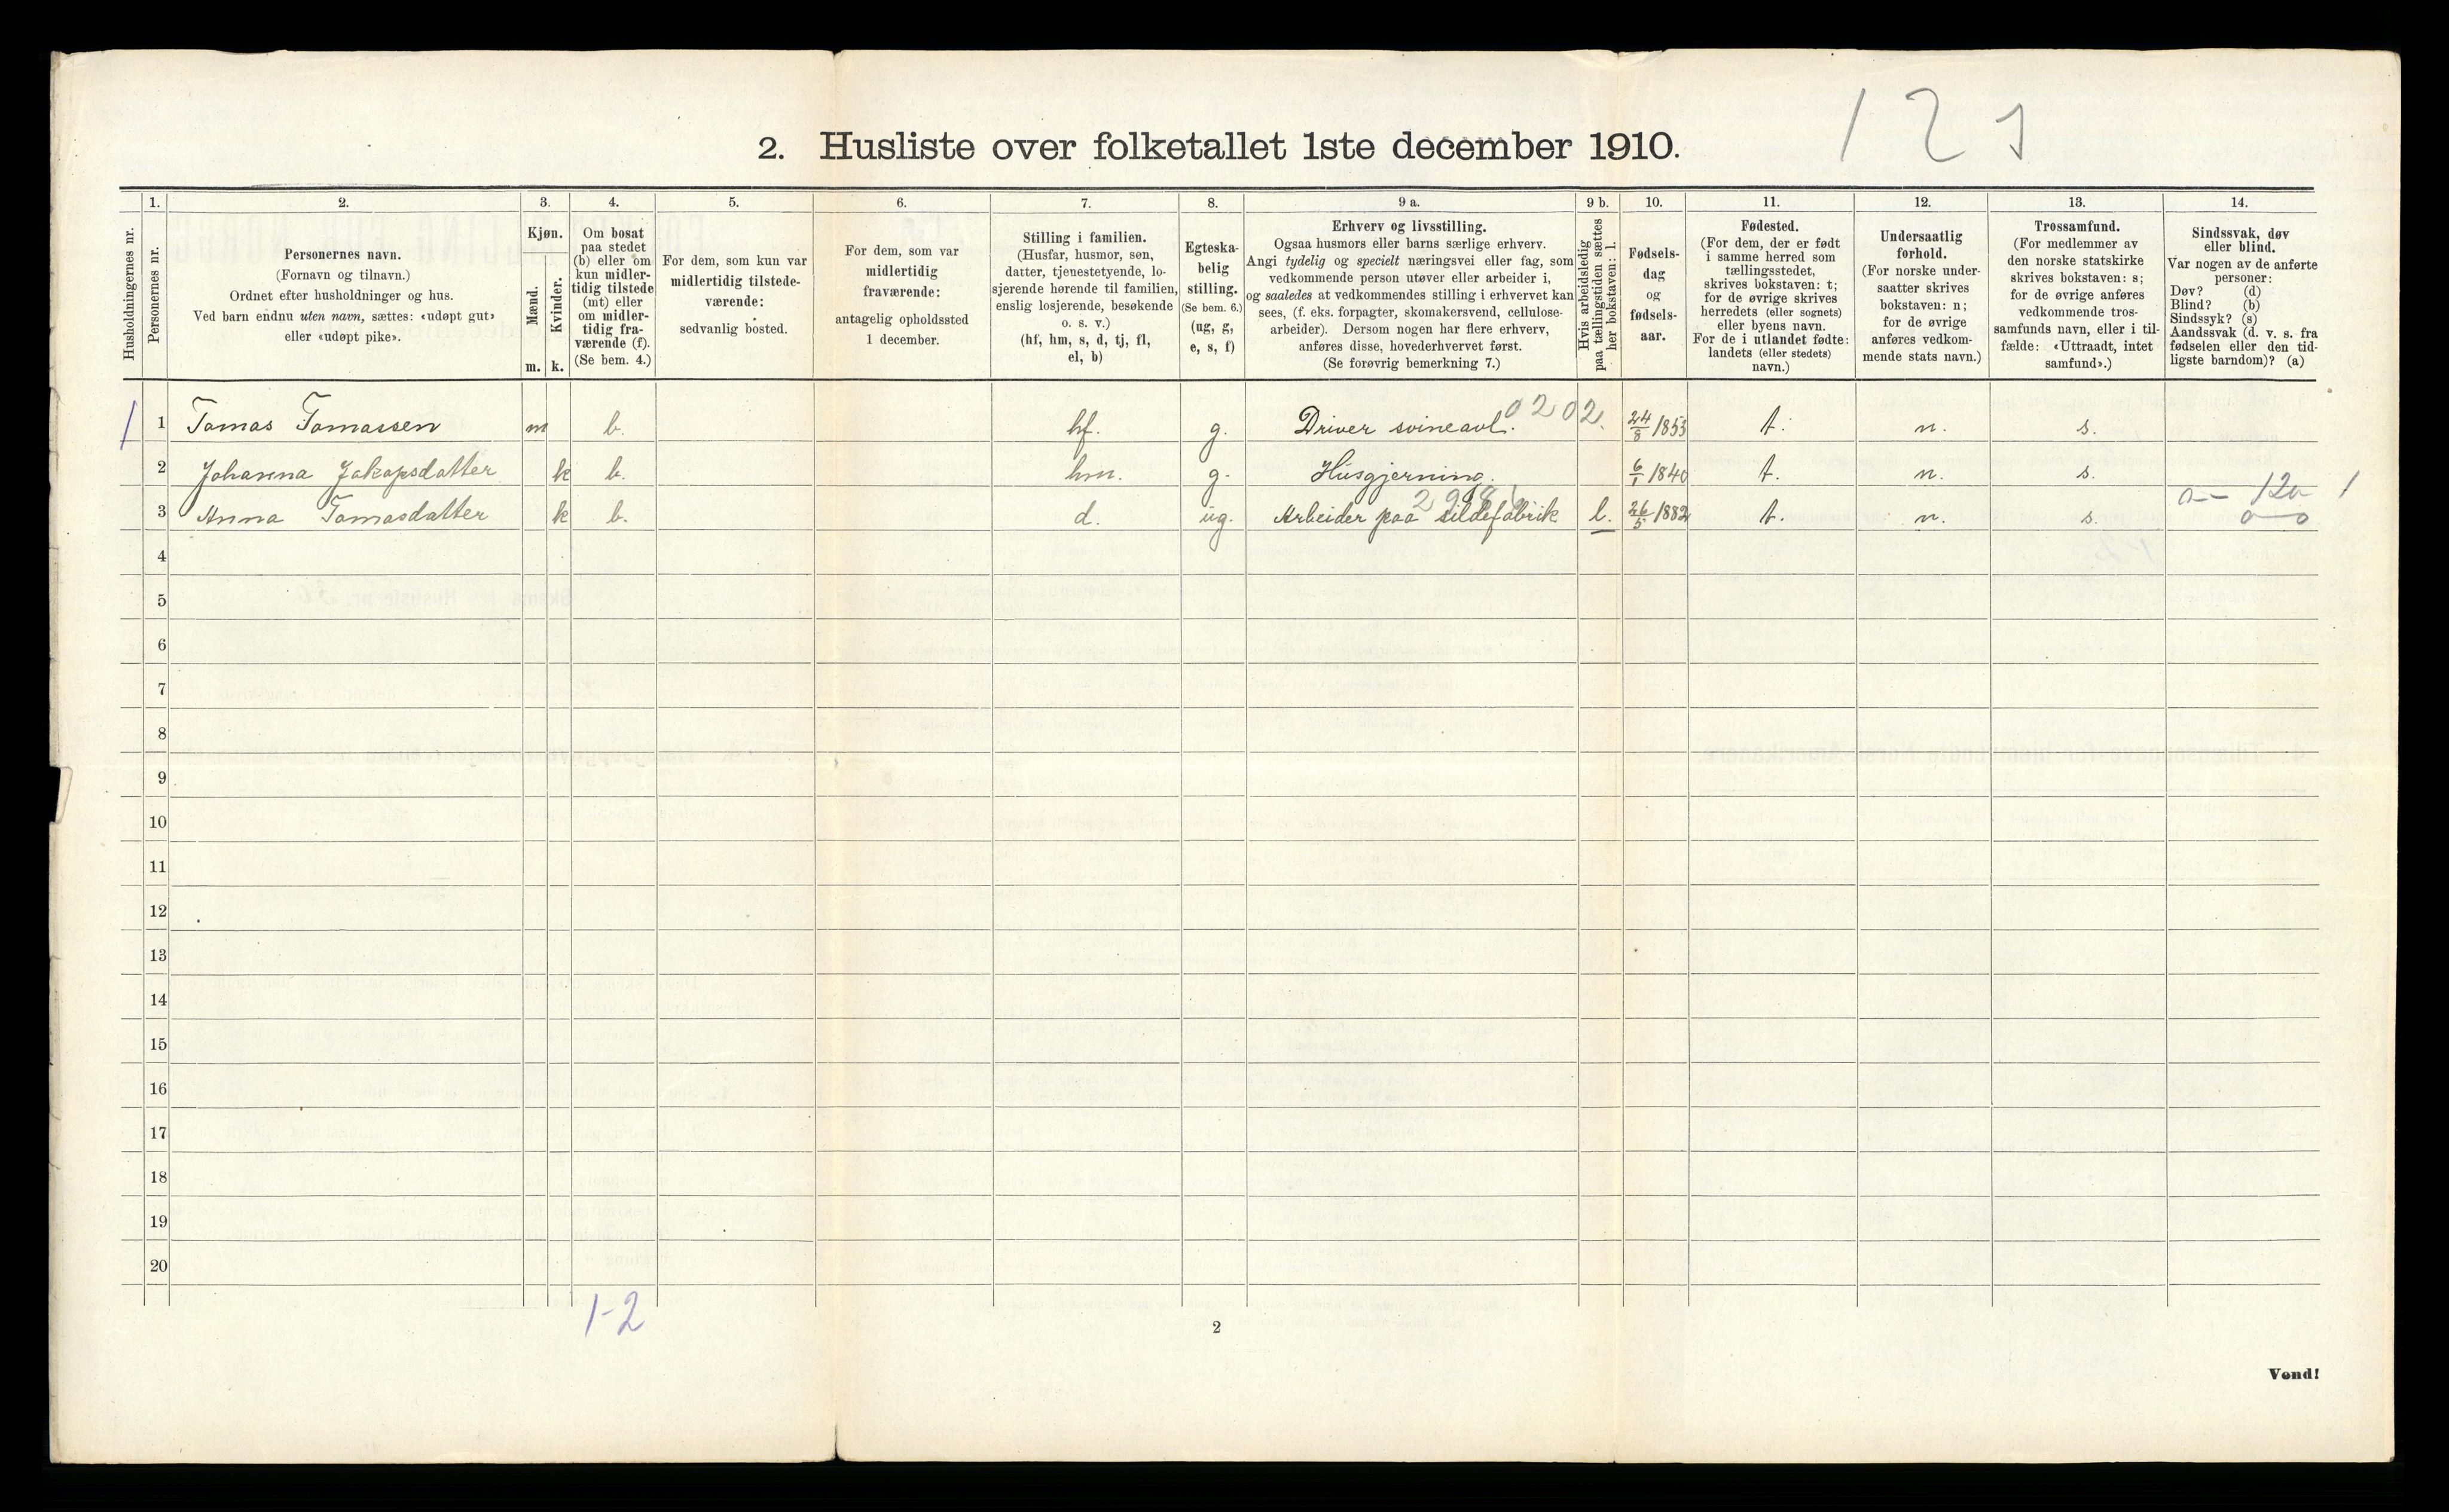 1 2 1
2. Husliste over folketallet 1ste december 1910.
Husholdningernes nr.
1.
Personernes nr.
2.
Personernes navn.
(Fornavn og tilnavn.)
Ordnet efter husholdninger og hus.
Ved barn endnu uten navn, sættes: «udøpt gut»
eller «udøpt pike».
3.
Kjøn.
Mænd.
Kvinder.
m. k.
4.
Om bosat
paa stedet
(b) eller om
kun midler-
tidig tilstede
(mt) eller
om midler-
tidig fra-
værende (f).
(Se bem. 4.)
5.
For dem, som kun var
midlertidig tilstede-
værende:
sedvanlig bosted.
6.
For dem, som var
midlertidig
fraværende:
antagelig opholdssted
1 december.
7.
Stilling i familien.
(Husfar, husmor, søn,
datter, tjenestetyende, lo-
sjerende hørende til familien,
enslig losjerende, besøkende
o. s. v.)
(hf, hm, s, d, tj, fl,
el, b)
8.
Egteska-
belig
stilling.
(Se bem. 6.)
(ug, g,
e, s, f)
9 a.
Erhverv og livsstilling.
Ogsaa husmors eller barns særlige erhverv.
Angi tydelig og specielt næringsvei eller fag, som
vedkommende person utøver eller arbeider i,
og saaledes at vedkommendes stilling i erhvervet kan
sees, (f. eks. forpagter, skomakersvend, cellulose-
arbeider). Dersom nogen har flere erhverv,
anføres disse, hovederhvervet først.
(Se forøvrig bemerkning 7.)
9 b.
Hvis arbeidsledig
paa tællingstiden sættes
her bokstaven: l.
10.
Fødsels-
dag
og
fødsels-
aar.
11.
Fødested.
(For dem, der er født
i samme herred som
tællingsstedet,
skrives bokstaven: t;
for de øvrige skrives
herredets (eller sognets)
eller byens navn.
For de i utlandet fødte:
landets (eller stedets)
navn.)
12.
Undersaatlig
forhold.
(For norske under-
saatter skrives
bokstaven: n;
for de øvrige
anføres vedkom-
mende stats navn.)
13.
Trossamfund.
(For medlemmer av
den norske statskirke
skrives bokstaven: s;
for de øvrige anføres
vedkommende tros-
samfunds navn, eller i til-
fælde: «Uttraadt, intet
samfund».)
14.
Sindssvak, døv
eller blind.
Var nogen av de anførte
personer:
Døv? (d)
Blind? (b)
Sindssyk? (s)
Aandssvak (d. v. s. fra
fødselen eller den tid-
ligste barndom)? (a)
1 1 Tomas Tomassen m b. hf. g. Driver svineavl. 0202. 24/8 1853 t. n. s.
2 Johanna Jakopsdatter k b. hm. g. Husgjerning. 6/1 1840 t. n. s.
3 Anna Tomasdatter k b. d. ug. Arbeider paa sildefabrik l. 26/5 1882 t. n. s.
4
5
6
7
8
9
10
11
12
13
14
15
16
17
18
19
20
1-2
2
Vend!